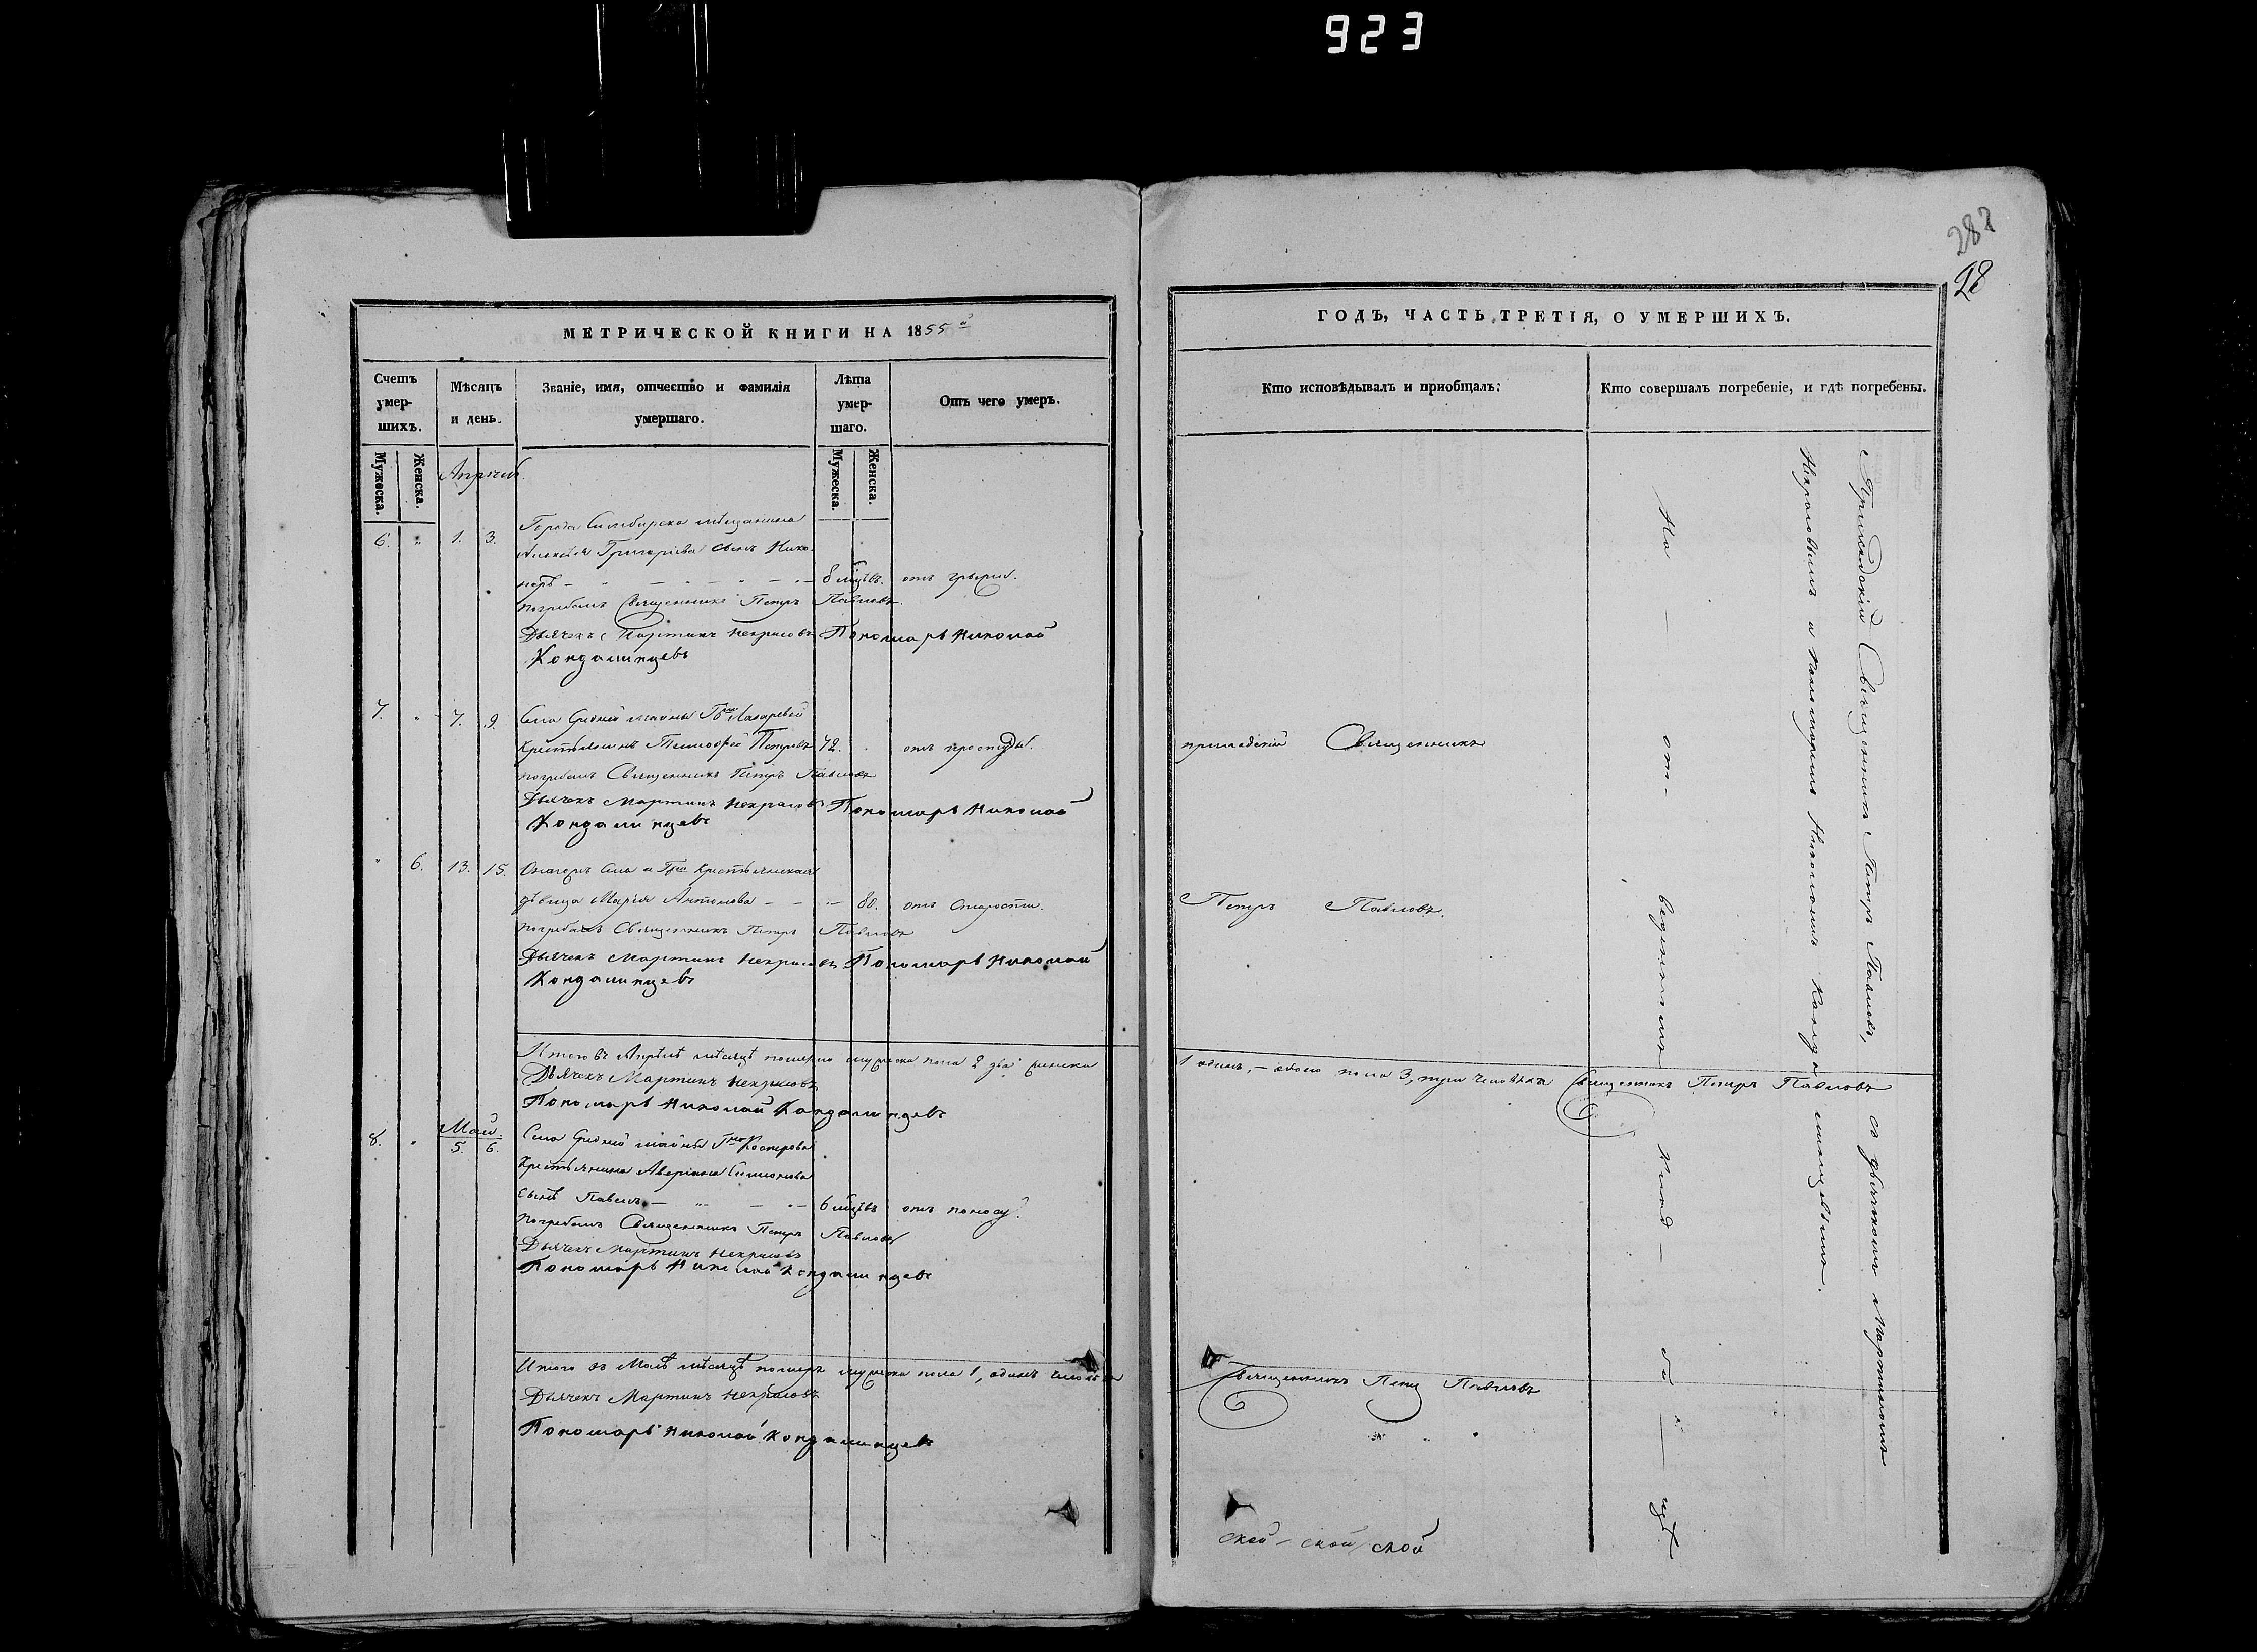 923
282
28
МЕТРИЧЕСКОЙ КНИГИ НА 1855 й
Счетъ умер-шихъ.
Мѣсяцъ и день.
Званіе, имя, отчество и фамилія умершаго.
Лѣта умер-шаго.
Отъ чего умеръ.
Мужеска.
Женска.
Мужеска.
Женска.
Апрѣль
6. " 1. 3. Города Симбирска мѣщанина
Алексѣя Григорьева сынъ Нико-
норъ – 8 мцвъ. отъ грыжи.
погребалъ Священникъ Петръ Павловъ.
Дьячекъ Мартинъ Некрасовъ Пономарь Николай
Кондалинцевъ
7. " 7. 9. Села Средней майны Гна Лазаревой
крестьянинъ Тимофей Петровъ 72. отъ простуды.
погребалъ Священникъ Петръ Павловъ
Дьячекъ Мартинъ Некрасовъ Пономарь Николай
Кондалинцевъ
" 6. 13. 15. Онагожъ Села и Гна крестьянская
дѣвица Марія Антонова – – – 80. отъ старости.
погребалъ Священникъ Петръ Павловъ
Дьячекъ Мартинъ Некрасовъ Пономарь Николай
Кондалинцевъ
Итого въ Апрѣлѣ мѣсяцѣ померло мужеска пола 2 два женска
Дьячекъ Мартинъ Некрасовъ
Пономарь Николай Кондалинцевъ
Май.
8. " 5. 6. Села Средней майны Гна
Крестьянина Аверіана Симонова
сынъ Павелъ – 6 мцвъ отъ поносу.
погребалъ Священникъ Петръ Павловъ
Дьячекъ Мартинъ Некрасовъ
Пономарь Николай Кондалинцевъ
Итого въ Маѣ мѣсяцѣ померъ мужеска пола 1, одинъ человѣкъ
Дьячекъ Мартинъ Некрасовъ
Пономарь Николай Кондалинцевъ
ГОДЪ, ЧАСТЬ ТРЕТІЯ, О УМЕРШИХЪ.
Кто исповѣдывалъ и пріобщалъ.
Кто совершалъ погребеніе, и гдѣ погребены.
приходскій Священникъ
Петръ Павловъ.
1 одинъ, – обоего пола 3, три человѣка Священникъ Петръ Павловъ
Священникъ Петръ Павловъ
ской – ской ской
Приходскій Священникъ Петръ Павловъ, съ дьячкомъ Мартиномъ
Некрасовымъ и пономаремъ Николаемъ Кондалинцевымъ.
На – от- веденномъ клад – би – щѣ